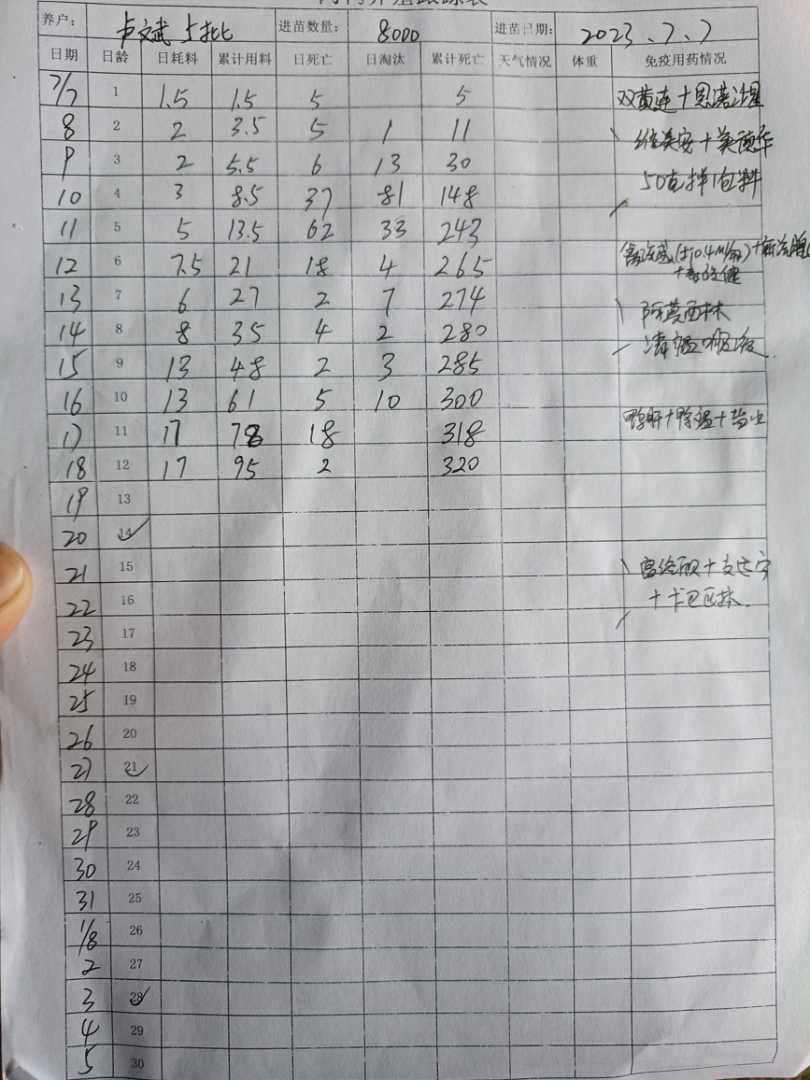 养户: 上批 进苗数量: 8000 进苗日期: 2023.7.7
日期 日龄 日耗料 累计用料 日死亡 日淘汰 累计死亡 天气情况 体重 免疫用药情况
7/7 1 1.5 1.5 5 5 双黄连+恩诺沙星
8 2 2 3.5 5 1 11
9 3 2 5.5 6 13 30
10 4 3 8.5 37 81 148 50克拌1包料
11 5 5 13.5 62 33 243
12 6 7.5 21 18 4 265
13 7 6 27 2 7 274 阿莫西林
14 8 8 35 4 2 280 清瘟口服液
15 9 13 48 2 3 285
16 10 13 61 5 10 300
17 11 17 78 18 318
18 12 17 95 2 320
19 13
20 14
21 15
22 16 +卡巴匹林
23 17
24 18
25 19
26 20
27 21
28 22
29 23
30 24
31 25
1/8 26
2 27
3 28
4 29
5 30